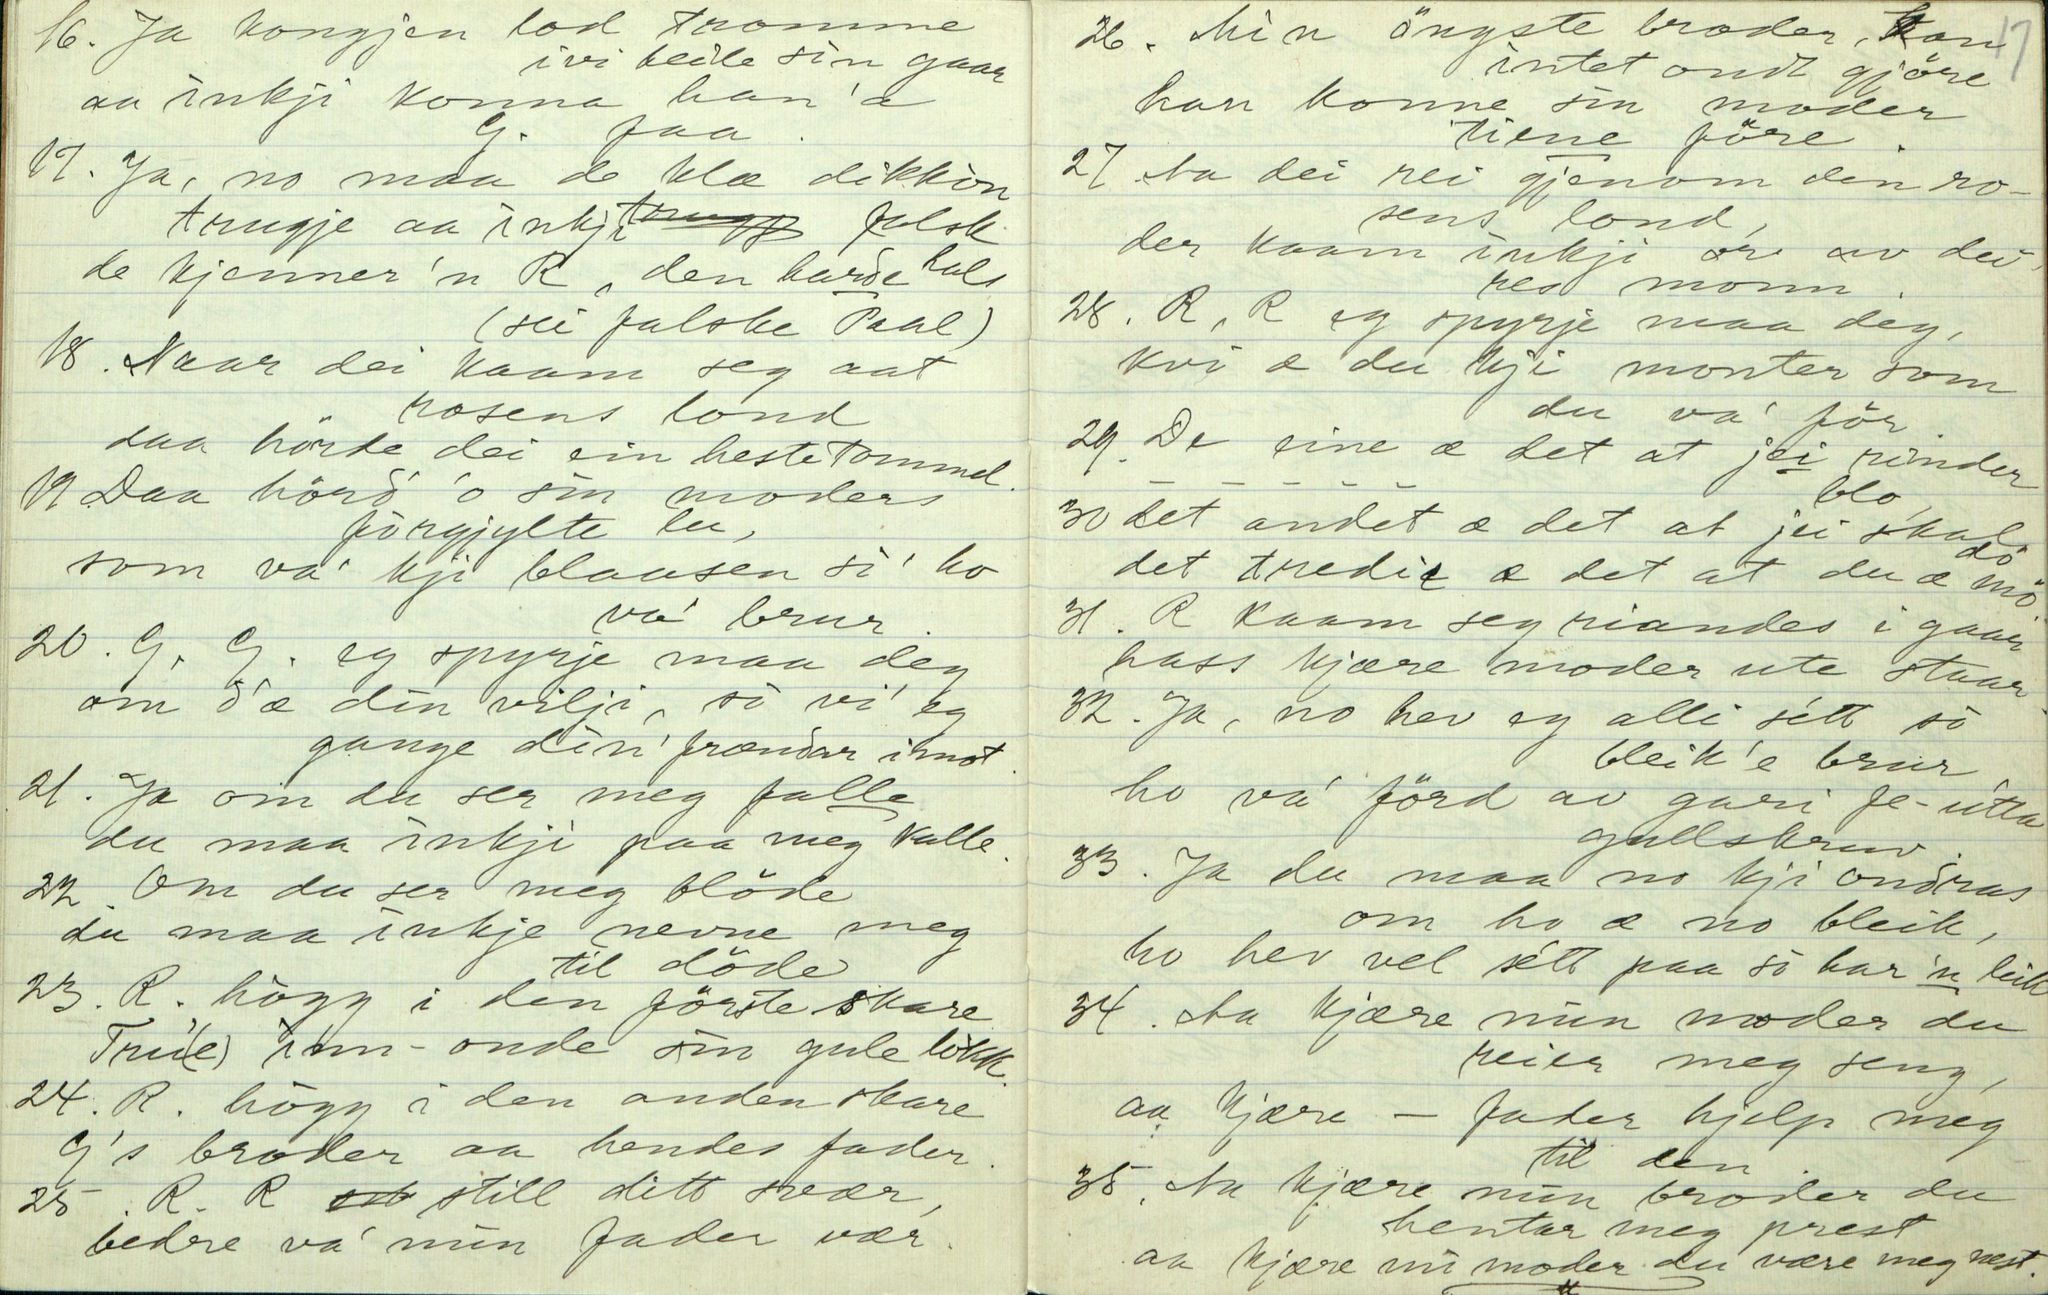 16. Ja kongjen lod tromme
ivi heile sin gaar
aa inkji konna han'a
G. faa.
17. Ja, no maa de klæ dikkon
trugje aa inkji falsk
de kjenner'n R, den harde hals
(sei falske Paal)
18. Naar dei kaam seg aat
rosens lond
daa hörde dei ein hestetommel.
19. Daa hörd'o sin moders
förgjylte lu,
som va' kji blaasen si' ho
va' brur.
20. G. G. eg spyrje maa deg
om d'æ din vilji, so vi' eg
gange din' frændar imot.
21. Ja om du ser meg falle
du maa inkji paa meg kalle.
22. Om du ser meg blöde
du maa inkje nevne meg
til döde
23. R. högg i den förste skare
Tru(e) inn-onde sin gule lökk.
24. R. högg i den anden skare
G's broder aa hendes fader.
25. R. R still ditt svær,
bedre va' min fader vær.
17
26. Min öngste broder, kan
intet ondt gjöre
han konne sin moder
tiene före.
27. Aa dei rei gjenom den ro-
sens lond,
der kaam inkji ore av dei-
res monn.
28. R, R eg spyrje maa deg,
kvi æ du kji monter som
du va' för.
29. De eine æ det at jei rinder
blo,
30 det andet æ det at jei skal
dö
det tredie æ det at du æ mö
31. R kaam seg riandes i gaar
hass kjære moder ute staar.
32. Ja, no hev eg alli sétt so
bleik'e brur
ho va' förd av gari fe-utta
gullskruv.
33. Ja du maa no kji ondras
om ho æ no bleik,
ho hev vel sétt paa so har'n leik
34. Aa kjære min moder du
reier meg seng,
aa kjære – fader hjelp meg
til den.
35. Aa kjære min broder du
hentar meg prest
aa kjære mi moder du være meg næst.